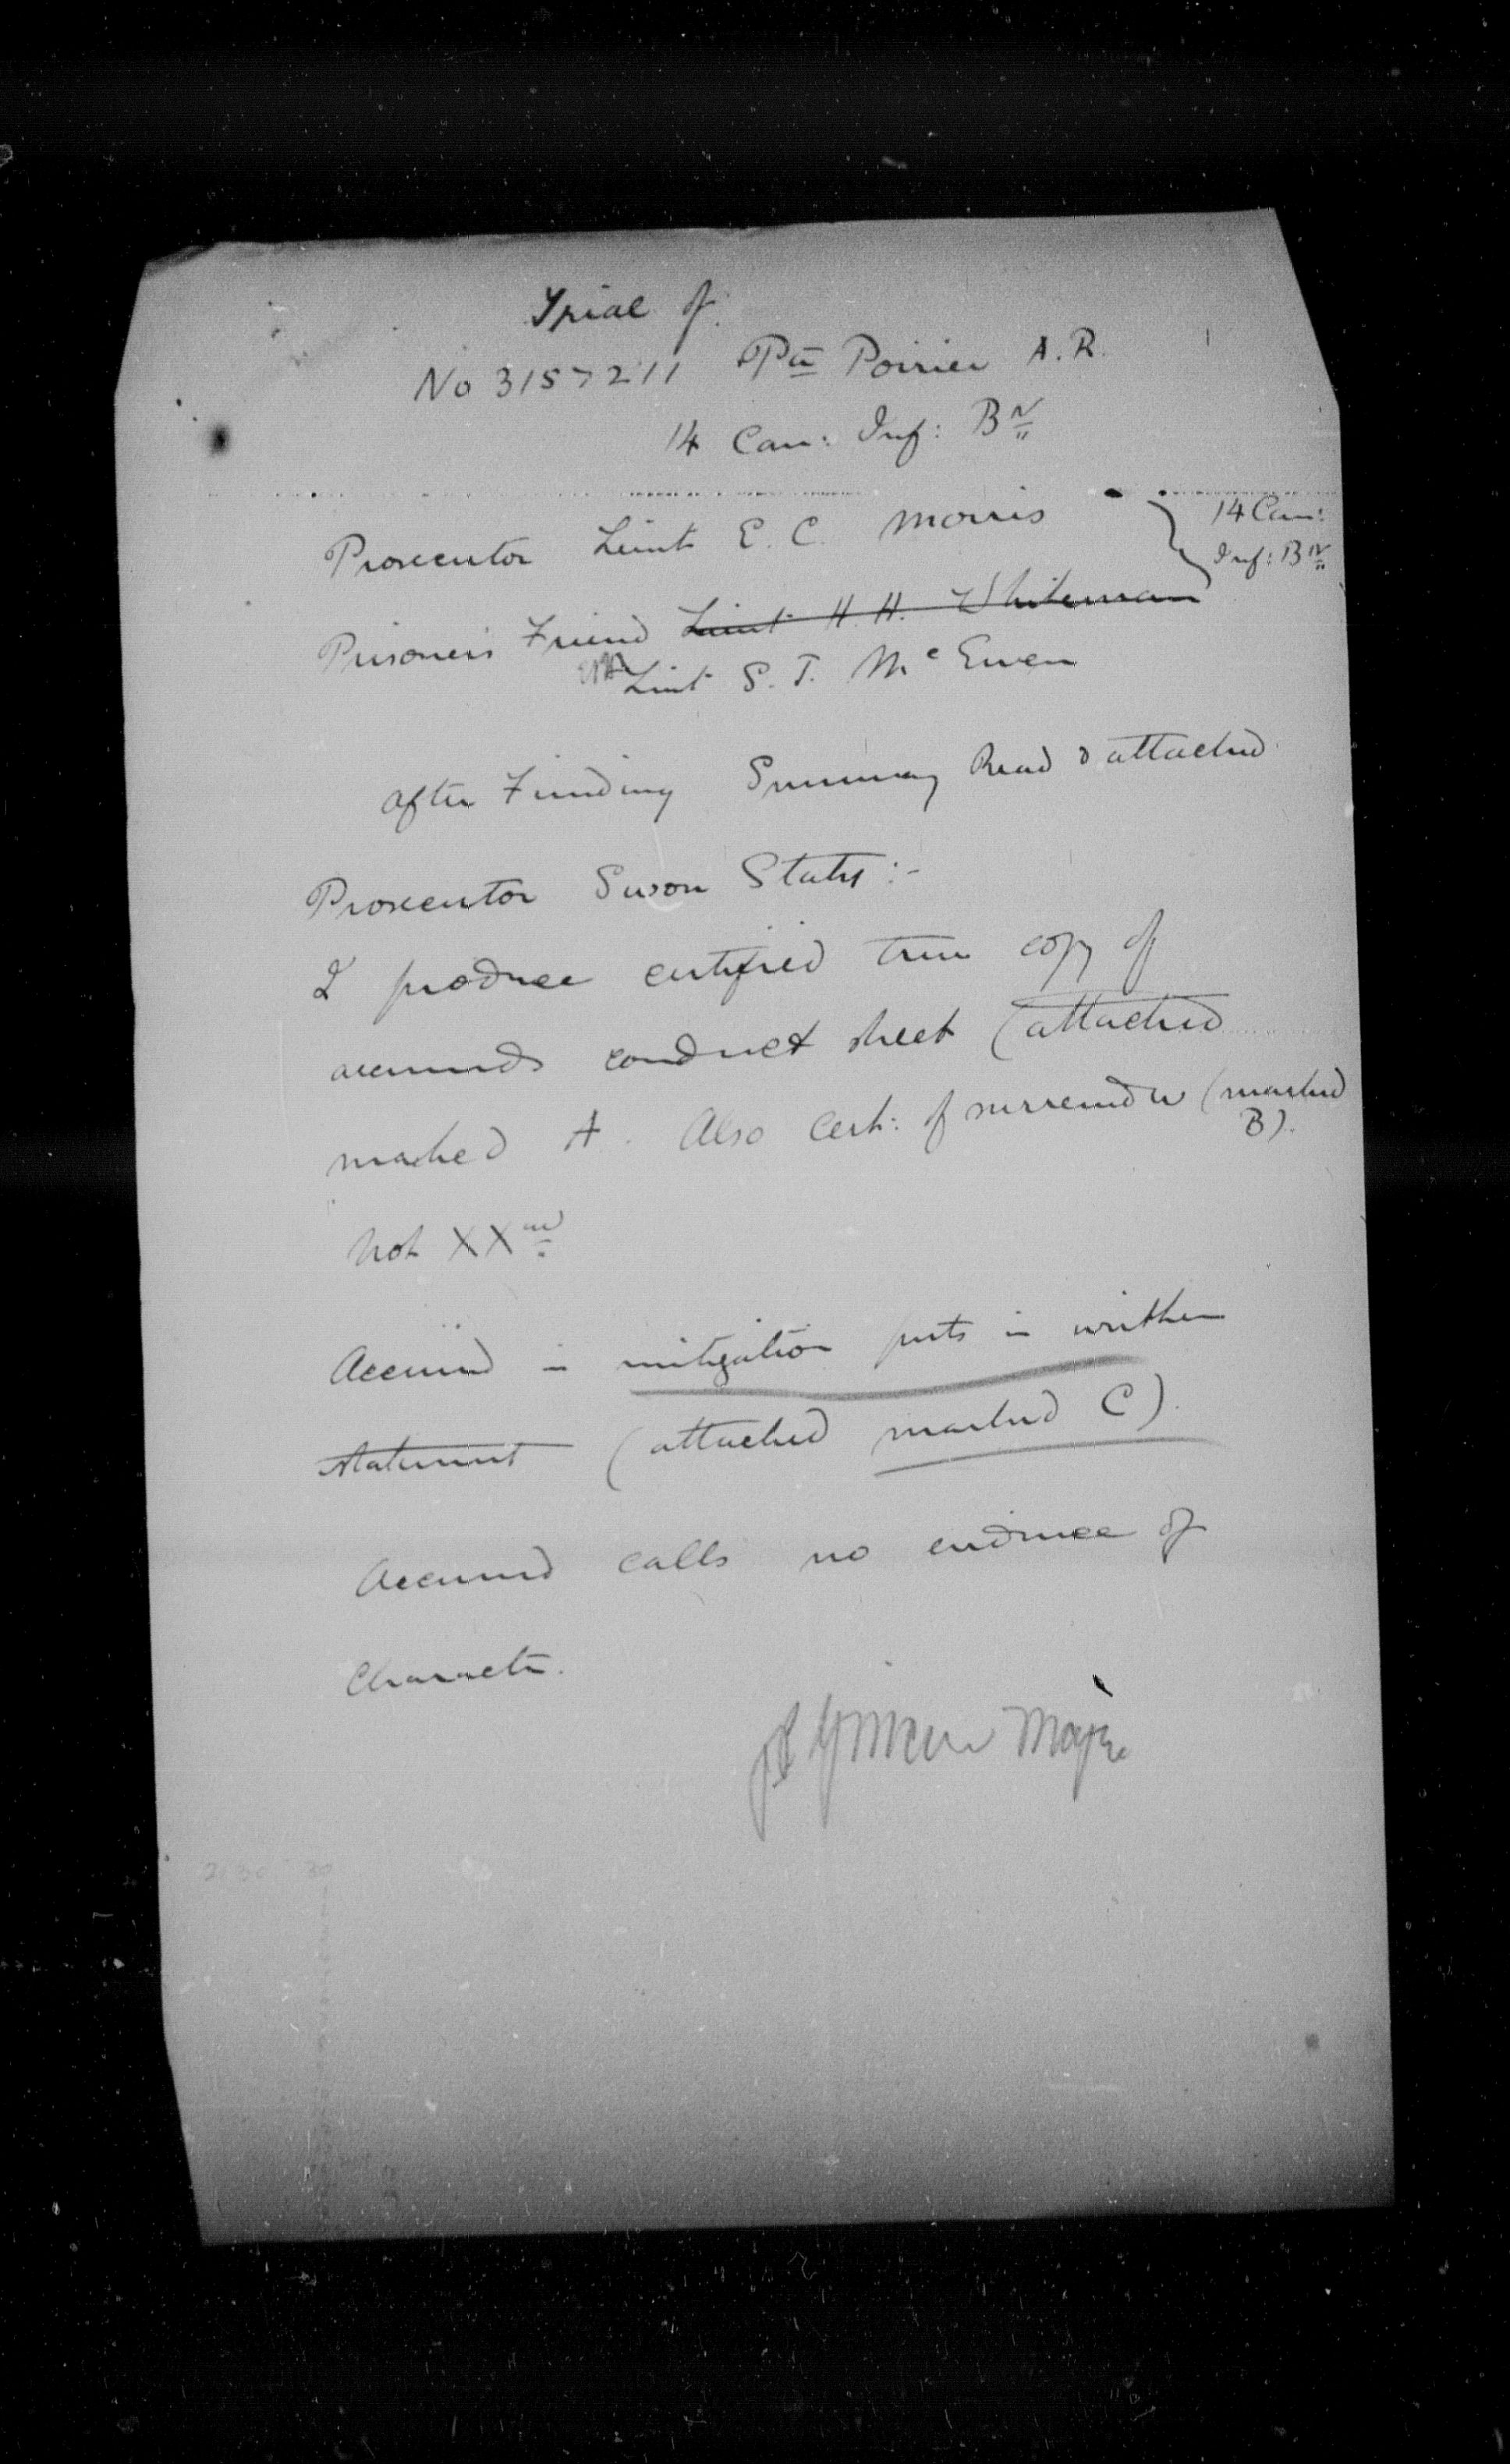 Trial of
No 3157211 Pte Poirier A. R.
14 Can: Inf: BN
Prosecutor Lieut E. C. Morris
14 Can:
Inf: BN
Prisoners Friend Lieut H. H. Whiteman
Lieut S. T. McEwen
After Finding Summary Read & attached
Prosecutor Sworn States:-
I produce certified true copy of
accuseds conduct sheet (attached
marked A. Also Cert: of surrender (marked
B).
Not XXed
Accused in mitigation puts in written
statement (attached marked C).
Accused calls no evidence of
Character.
Major